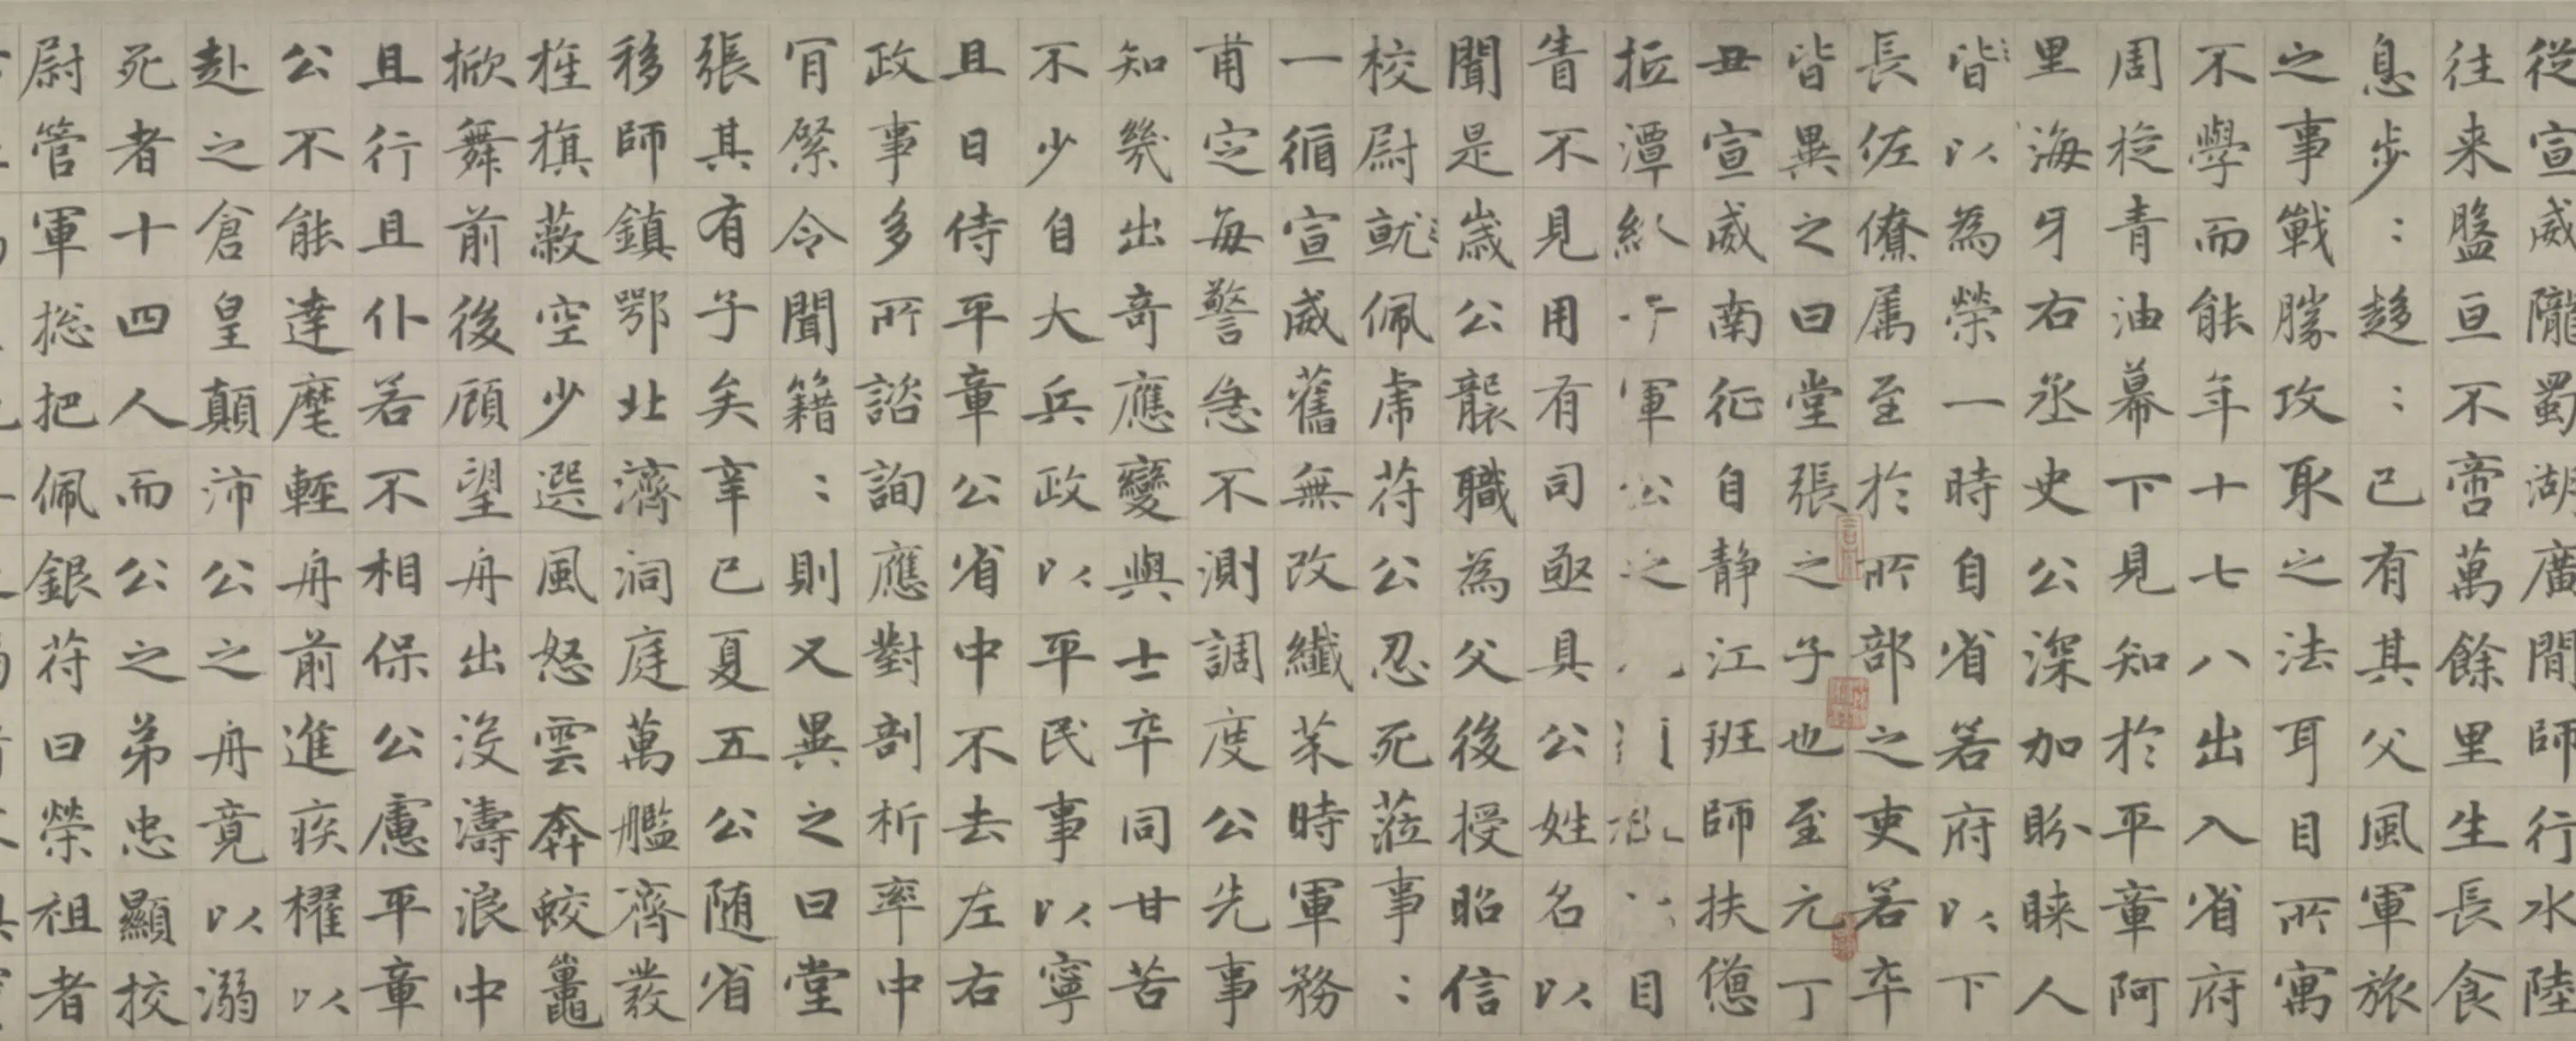 從宣威隴蜀湖廣間師行水陸
往来盤亘不啻萬餘里生長食
息步：趍：已有其父風軍旅
之事戰勝攻取之法耳目所寓
不學而能年十七八出入省府
周旋青油幕下見知於平章阿
里海牙右丞史公深加盼睞人
皆以為榮一時自省若府以下
長佐僚属至於所部之吏若卒
皆異之曰堂張之子也至元丁
丑宣威南征自静江班師扶憊
拉潭 軍 之 目
眚不見用有司亟具公姓名以
聞是歲公襲職為父後授昭信
校尉就佩虎符公忍死蒞事：
一循宣威舊無改纖芥時軍務
甫定每警急不測調度公先事
知幾出奇應變與士卒同甘苦
不少自大兵政以平民事以寧
且日侍平章公省中不去左右
政事多所諮詢應對剖析率中
肎綮令聞籍：則又異之曰堂
張其有子矣辛巳夏五公随省
移師鎮鄂北濟洞庭萬艦濟發
旌旗蔽空少選風怒雲奔蛟鼉
掀舞前後顧望舟出没濤浪中
且行且仆若不相保公慮平章
公不能達麾輕舟前進疾櫂以
赴之倉皇顛沛公之舟竟以溺
死者十四人而公之弟忠顯校
尉管軍捴把佩銀符曰榮祖者